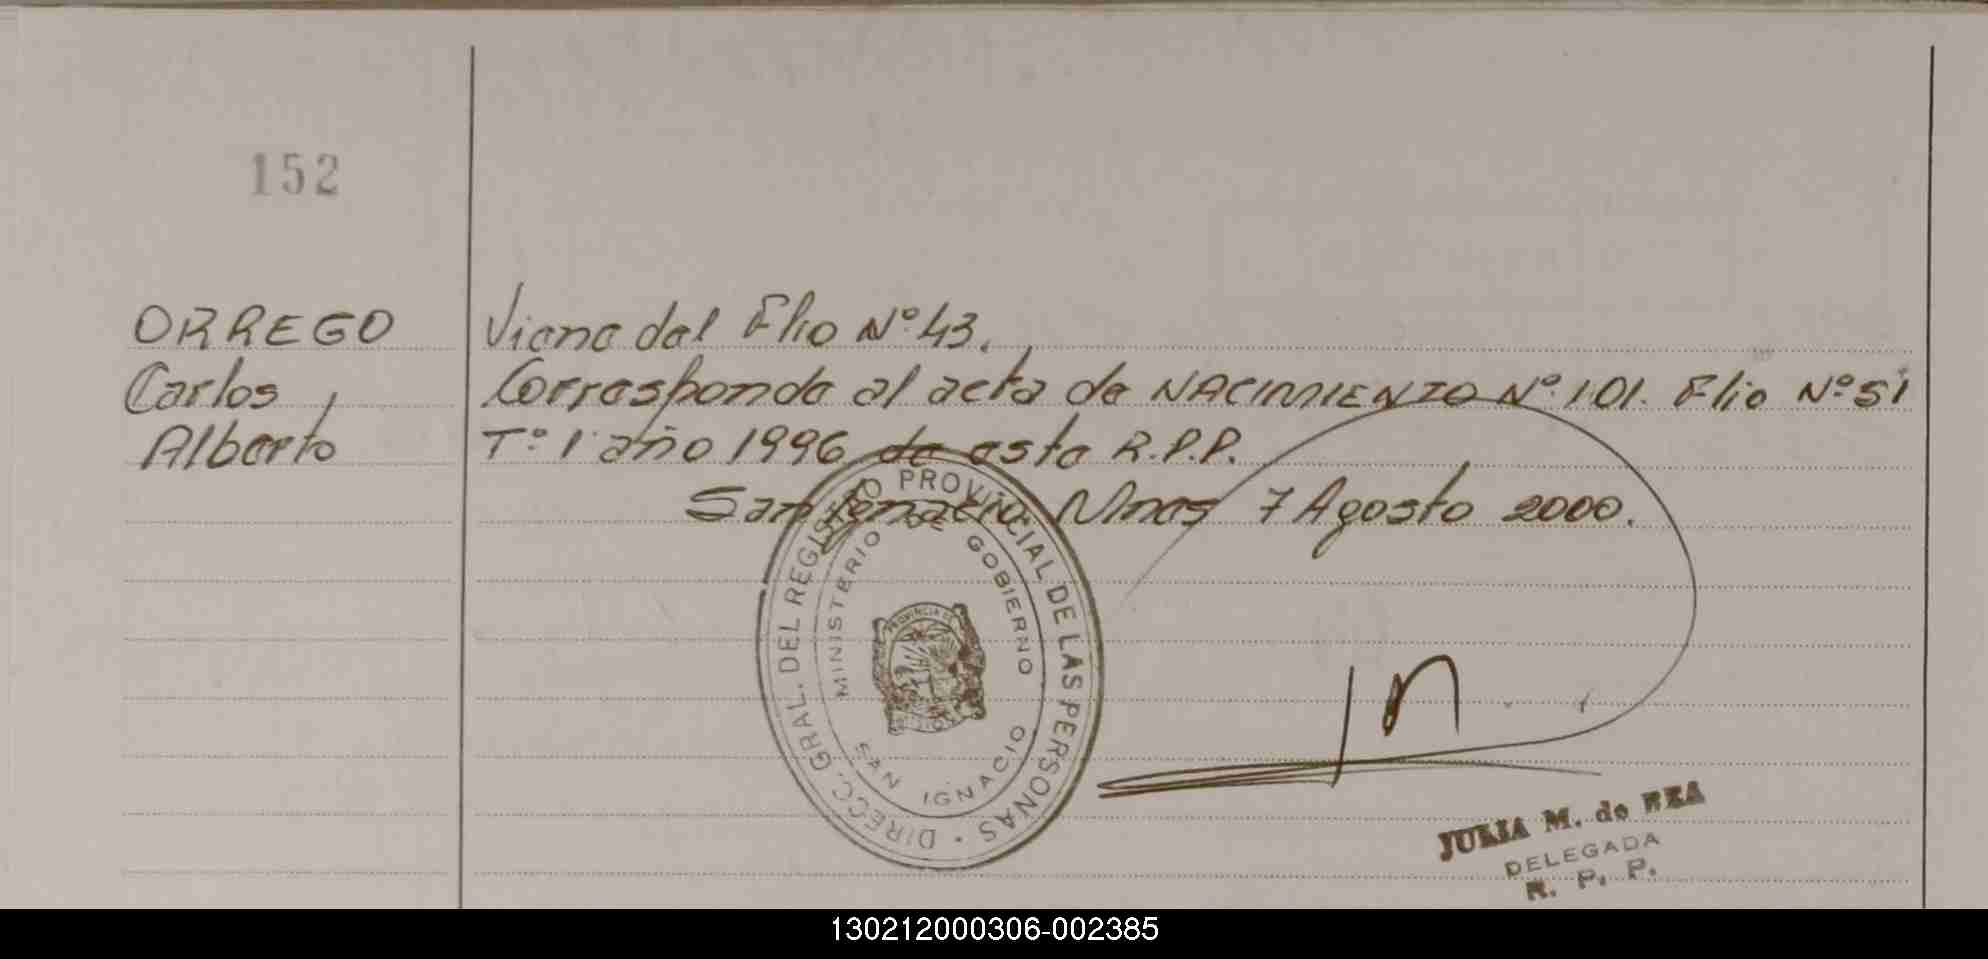 152
ORREGO
Carlos
Alberto
Viene del Flio Nº 43.
Corresponde al acta de NACIMIENTO Nº 101. Flio Nº 51
Tº 1 año 1996 de esta R.P.P.
San Ignacio, Mnes 7 Agosto 2000.
DIRECC. GRAL. DEL REGISTRO PROVINCIAL DE LAS PERSONAS
MINISTERIO DE GOBIERNO
SAN IGNACIO
PROVINCIA DE
JULIA M. de REA
DELEGADA
R. P. P.
130212000306-002385